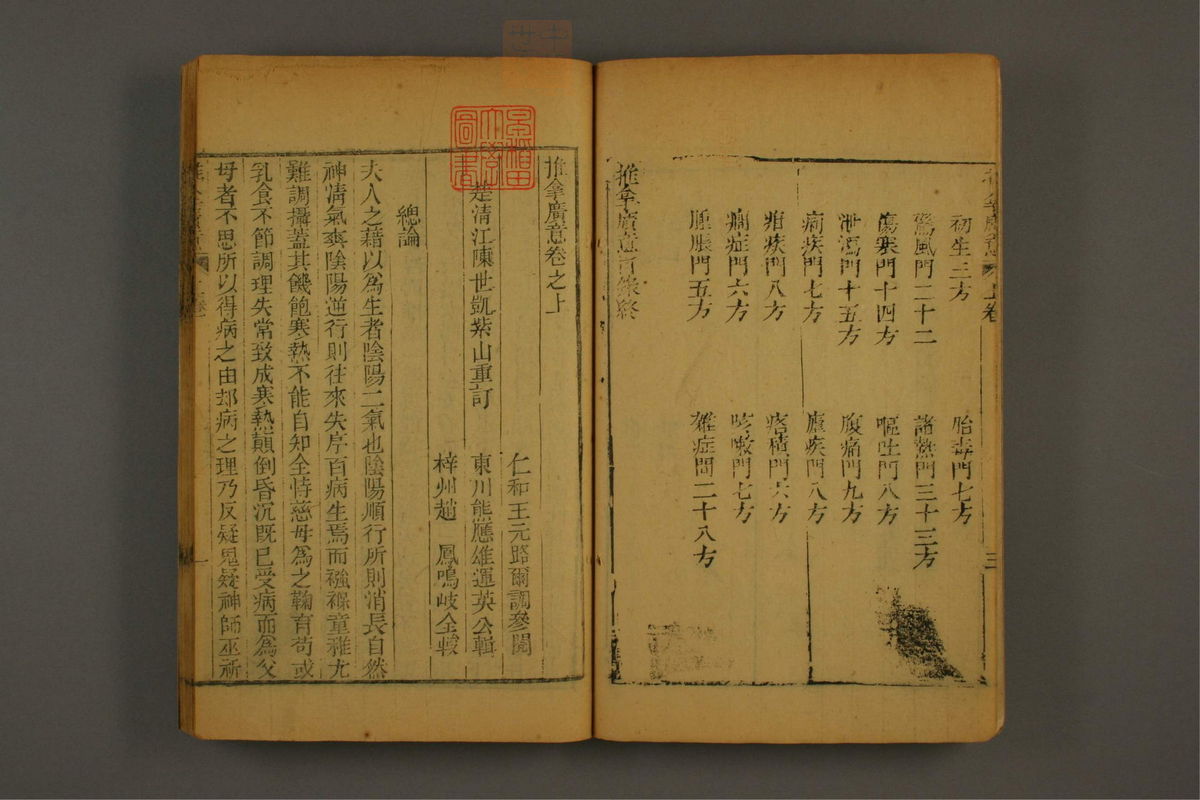 初生三方 胎毒門七方
驚風門二十二 諸熱門三十三方
傷寒門十四方 嘔吐門八方
泄瀉門十五方 腹痛門九方
痢疾門七方 瘧疾門八方
疳疾門八方 痞積門六方
癇症門六方 咳嗽門七方
腫脹門五方 雜症門二十八方
推拿廣意目錄終
上卷
三
推拿廣意卷之上
仁和王元路爾調參閱
楚清江陳世凱紫山重訂 東川熊應雄運英公輯
梓州趙 鳳鳴岐仝較
總論
夫人之藉以為生者陰陽二氣也陰陽順行所則消長自然
神清氣爽陰陽逆行則往來失序百病生焉而襁褓童稚尤
難調攝蓋其饑飽寒熱不能自知全恃慈母為之鞠育苟或
乳食不節調理失常致成寒熱顛倒昏沉既已受病而為父
母者不思所以得病之由却病之理乃反疑鬼疑神師巫祈
一
圖書